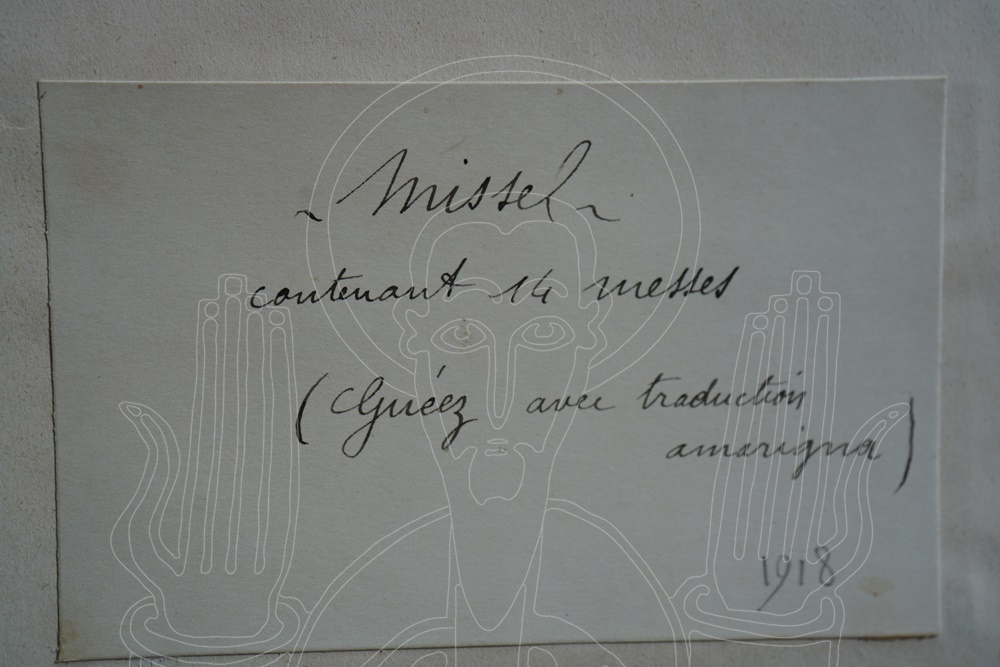 ~ Missel ~
contenant 14 messes
(Guéez avec traduction
amarigna)
1918